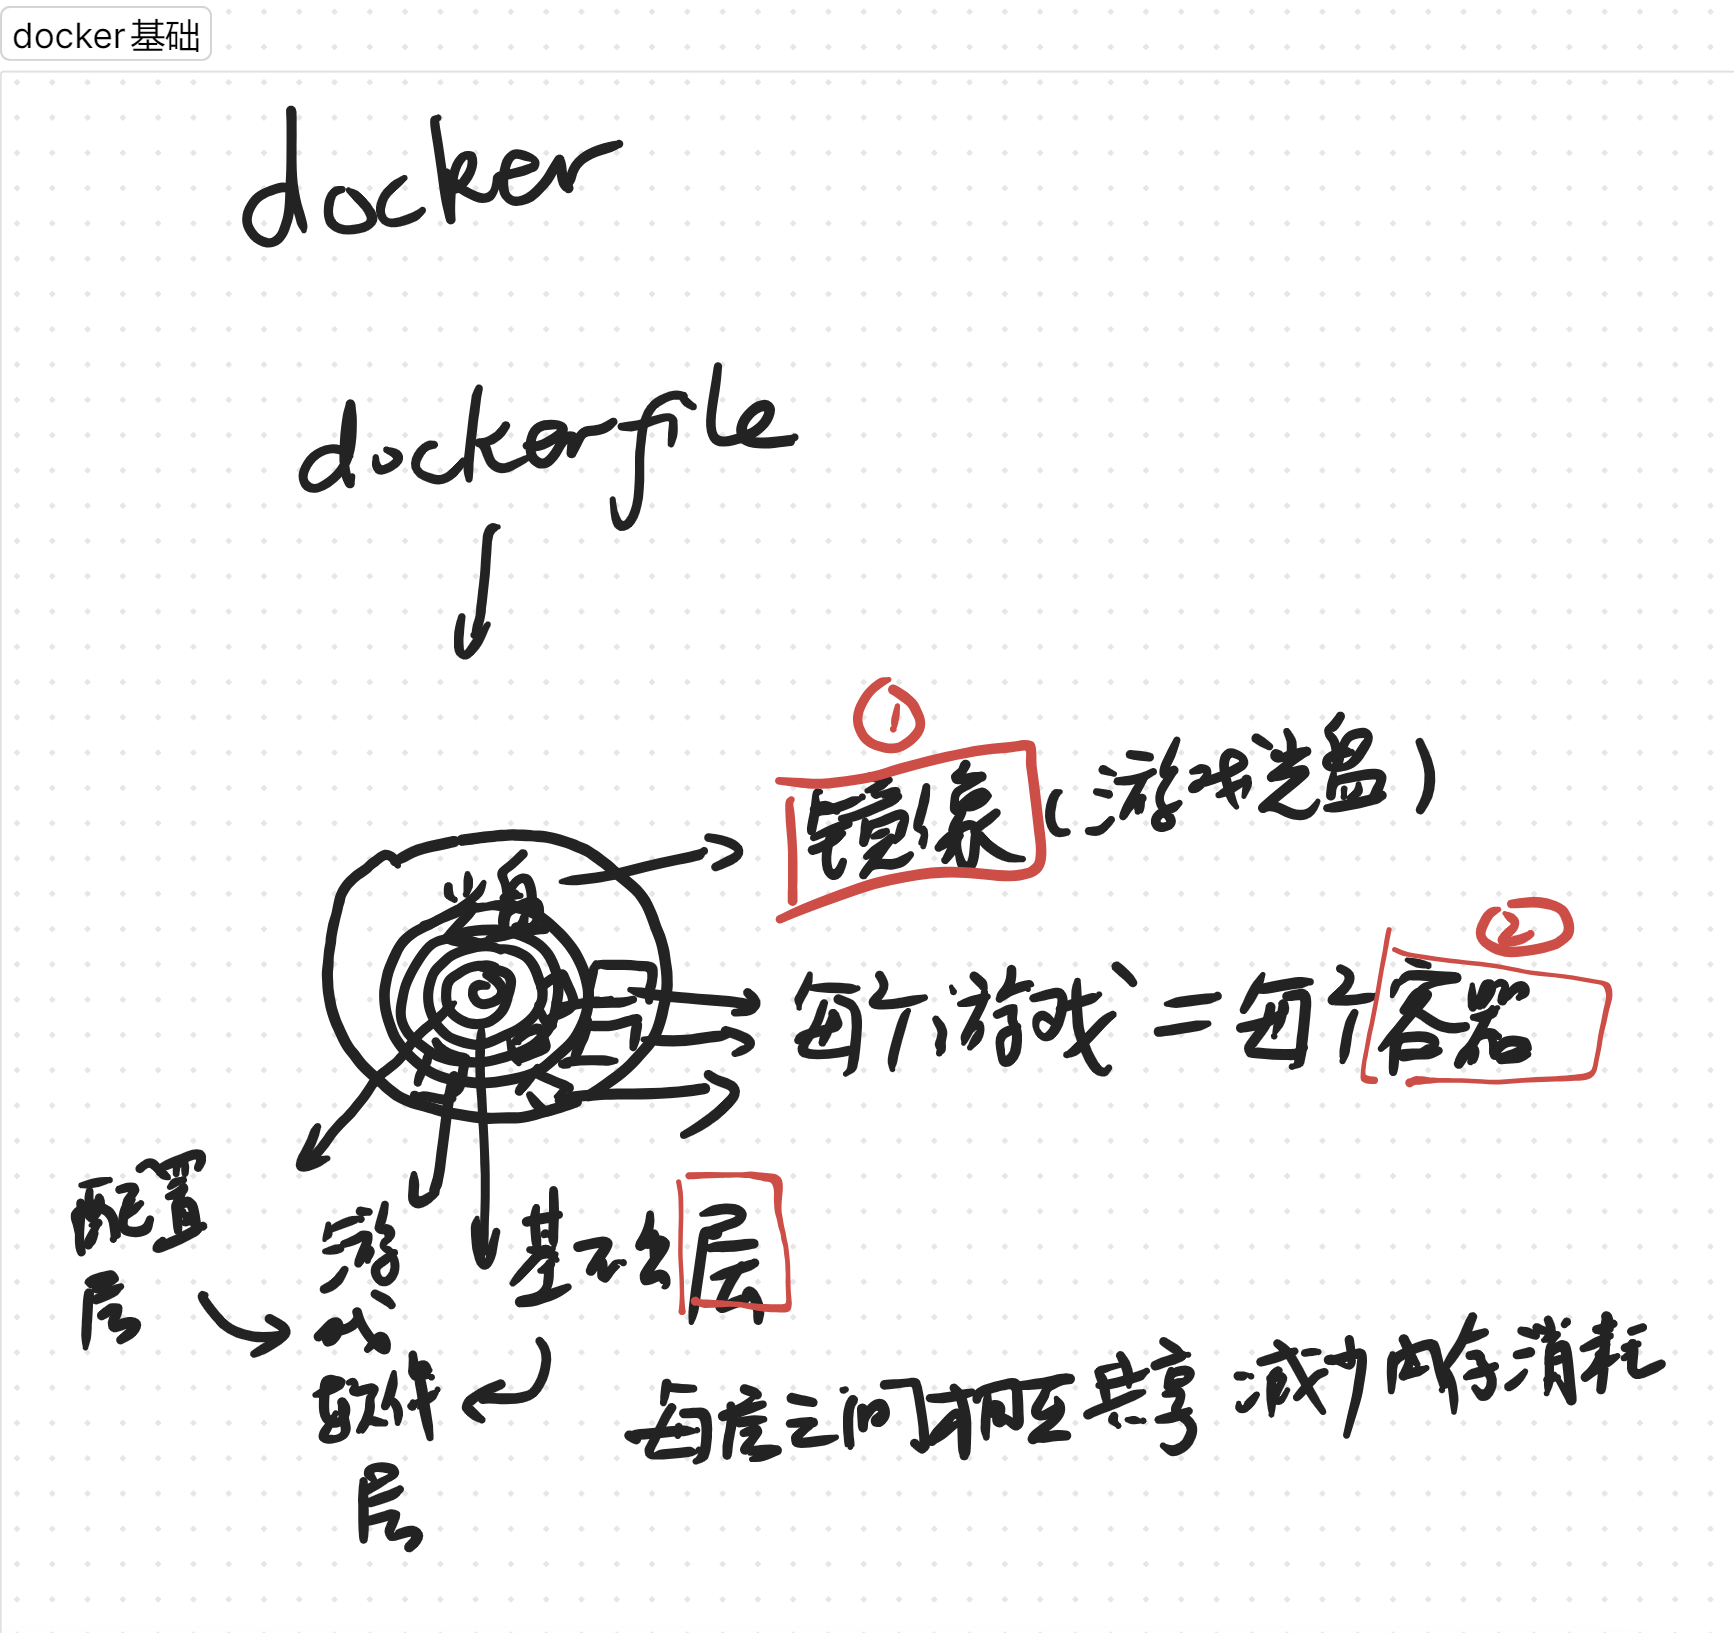 docker基础
docker
dockerfile
①
镜像(游戏光盘)
光盘
②
每个游戏 = 每个容器
配置
层
游
戏
软件
层
基础层
每层之间相互共享 减少内存消耗